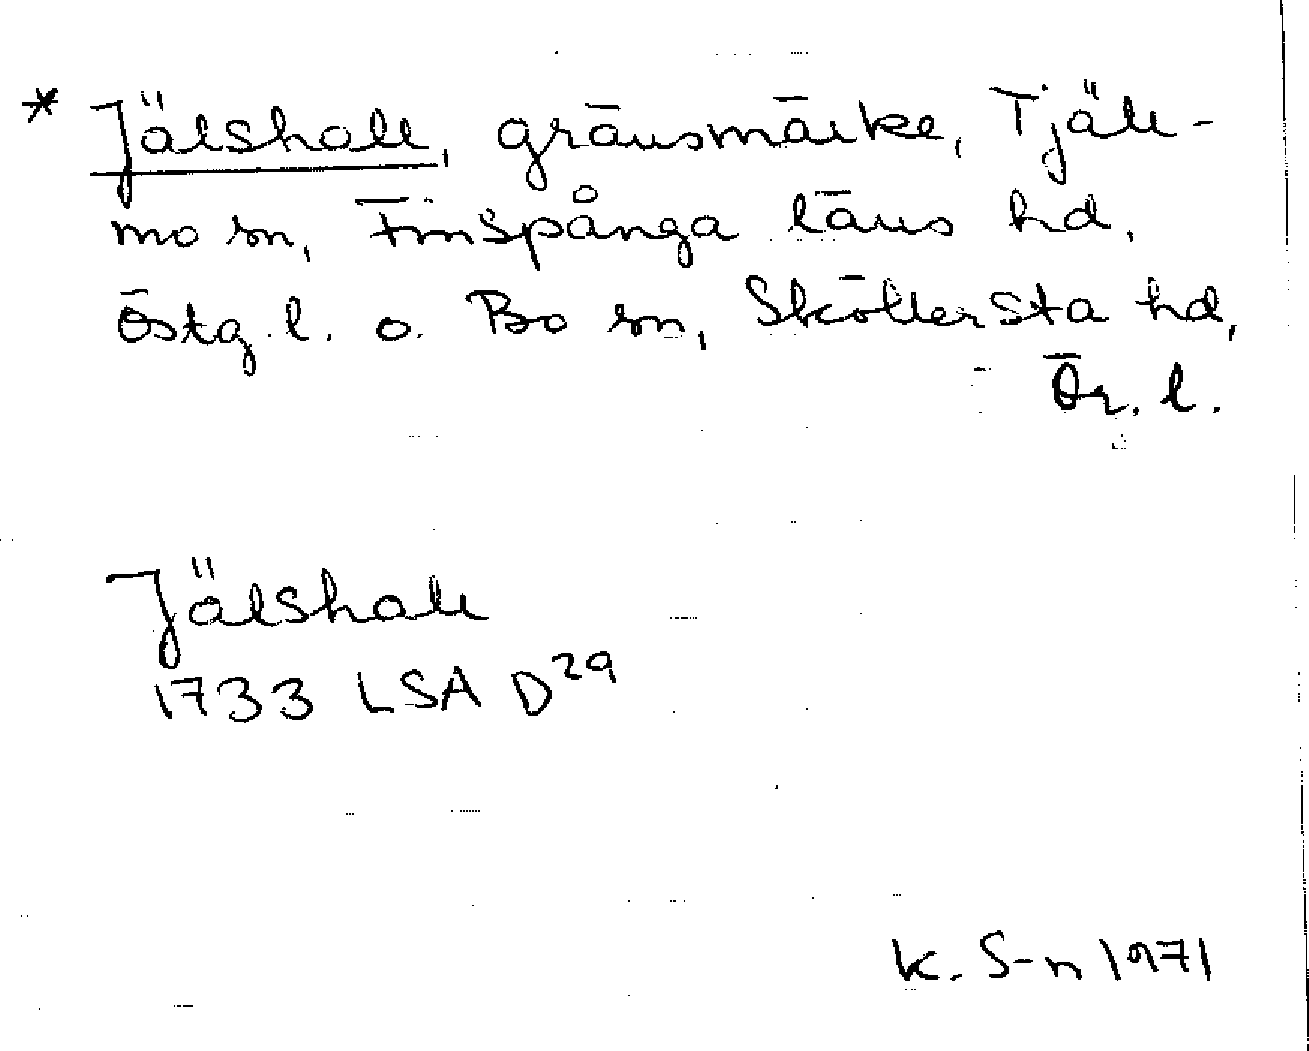 * Jälshall, gränsmärke, Tjäll-
mo sn, Finspånga läns hd,
Östg. l. o. Bo sn, Sköllersta hd,
Ör. l.
Jälshall
1733 LSA D²⁹
K. S-n 1971